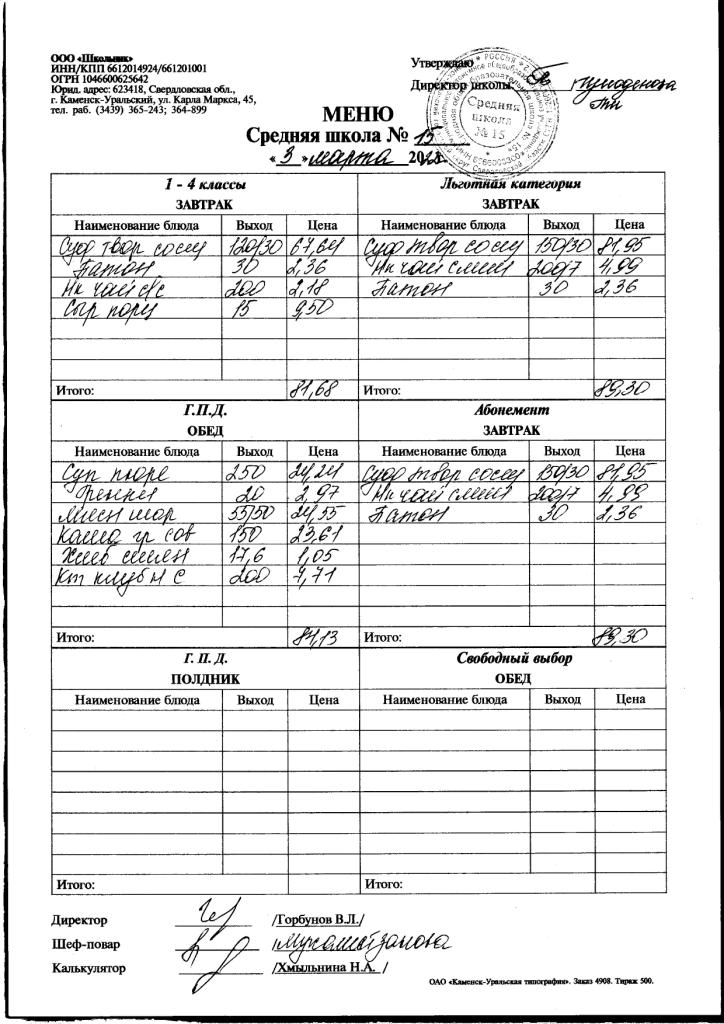 ООО «Школьник»
ИНН/КПП 6612014924/661201001
ОГРН 1046600625642
Юрид. адрес: 623418, Свердловская обл.,
г. Каменск-Уральский, ул. Карла Маркса, 45,
тел. раб. (3439) 365-243; 364-899
Утверждаю
Директор школы:
Средняя школа № 15
МЕНЮ
Средняя школа № 15
« 3 » марта 20
1 - 4 классы Льготная категория
ЗАВТРАК ЗАВТРАК
Наименование блюда Выход Цена Наименование блюда Выход Цена
Суф твор сосиц 120/30 67,64 Суф твор сосиц 150/30 81,95
Батон 30 2,36 Нк чай слим 200/7 4,99
Нк чай с/с 200 2,18 Батон 30 2,36
Сыр порц 15 9,50
Итого: 81,68 Итого: 89,30
Г.П.Д. Абонемент
ОБЕД ЗАВТРАК
Наименование блюда Выход Цена Наименование блюда Выход Цена
Суп пюре 250 24,24 Суф твор сосиц 150/30 81,95
Гренки 20 2,97 Нк чай слим 200/7 4,99
55/50 24,55 Батон 30 2,36
гр сов 150 23,61
Хлеб 17,6 1,05
Кт клубн с 200 7,71
Итого: 84,13 Итого: 89,30
Г. П. Д. Свободный выбор
ПОЛДНИК ОБЕД
Наименование блюда Выход Цена Наименование блюда Выход Цена
Итого: Итого:
Директор /Горбунов В.Л./
Шеф-повар
Калькулятор /Хмыльнина Н.А. /
ОАО «Каменск-Уральская типография». Заказ 4908. Тираж 500.